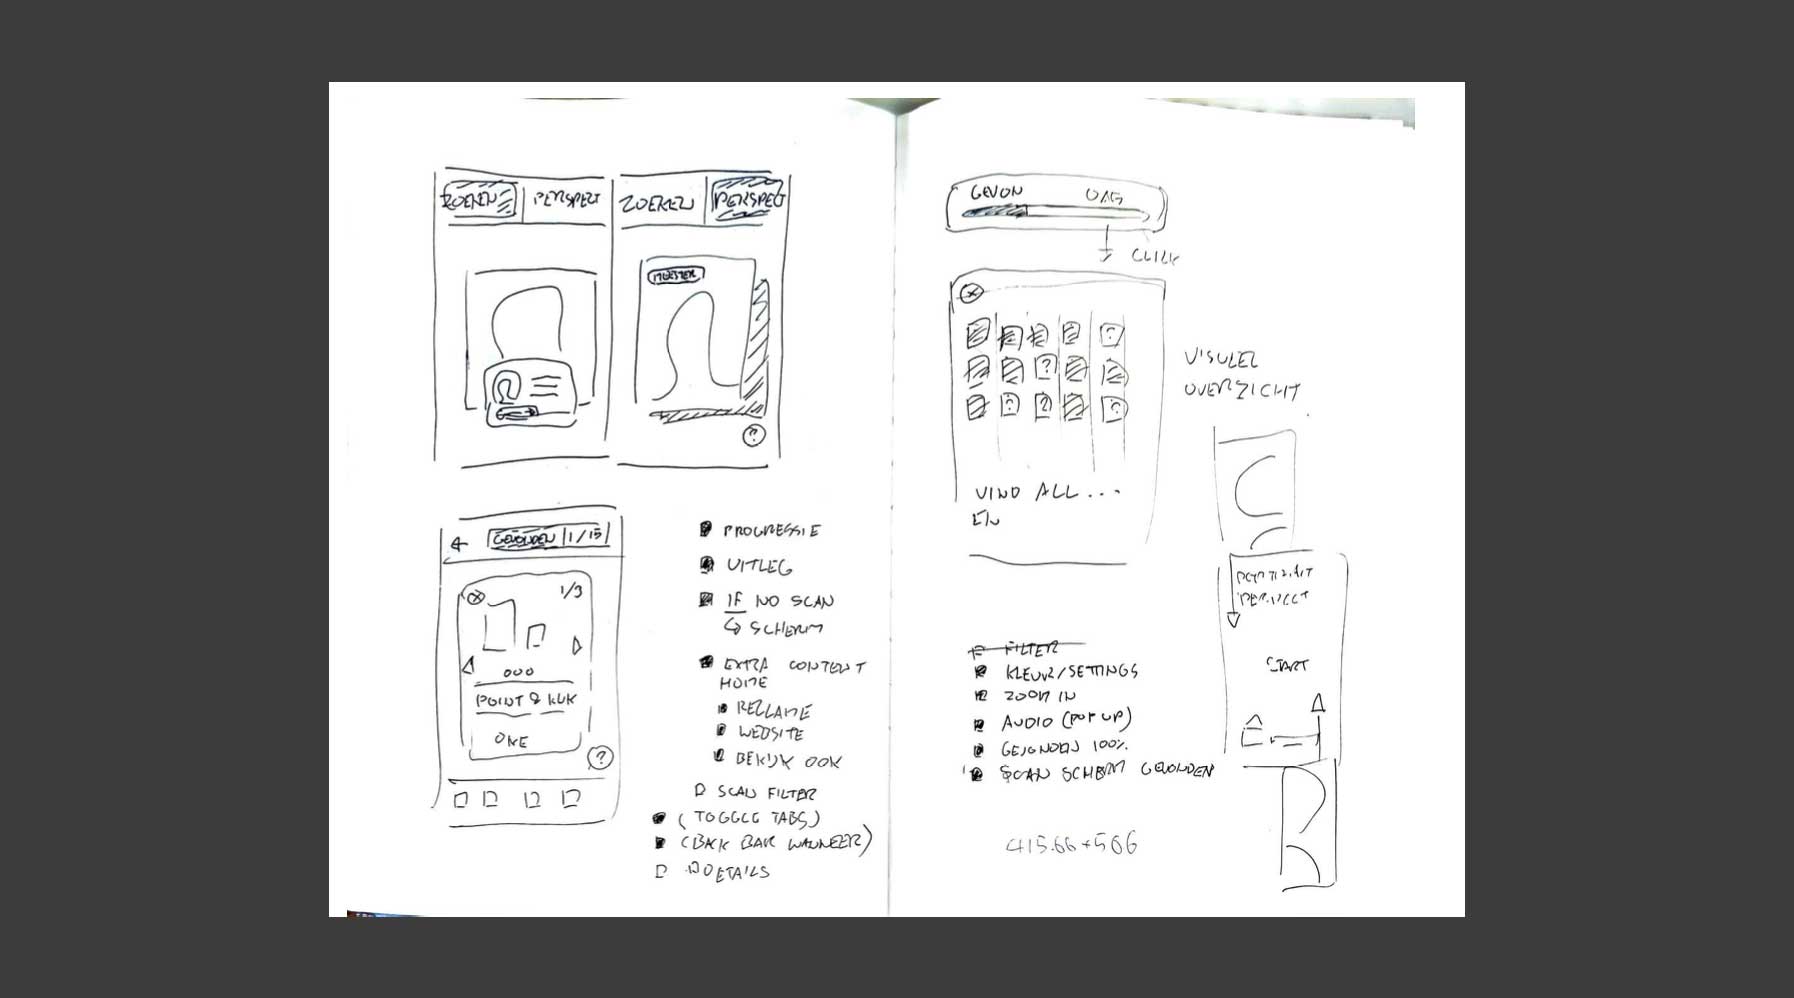 ZOEKEN
PERSPECT
ZOEKEN
PERSPECT
MEESTER
?
GEVONDEN 1/15
1/3
000
POINT & KLIK
ONE
?
PROGRESSIE
UITLEG
IF NO SCAN
↳ SCHERM
EXTRA CONTENT
HOME
RECLAME
WEBSITE
BEKIJK OOK
SCAN FILTER
(TOGGLE TABS)
(BACK BAR WANNEER)
DETAILS
GEVON
CLICK
?
?
? ? ?
VIND ALL...
EN
VISUEEL
OVERZICHT
START
FILTER
KLEUR/SETTINGS
ZOOM IN
AUDIO (POP UP)
100%
SCAN SCHERM GEVONDEN
415.66+506